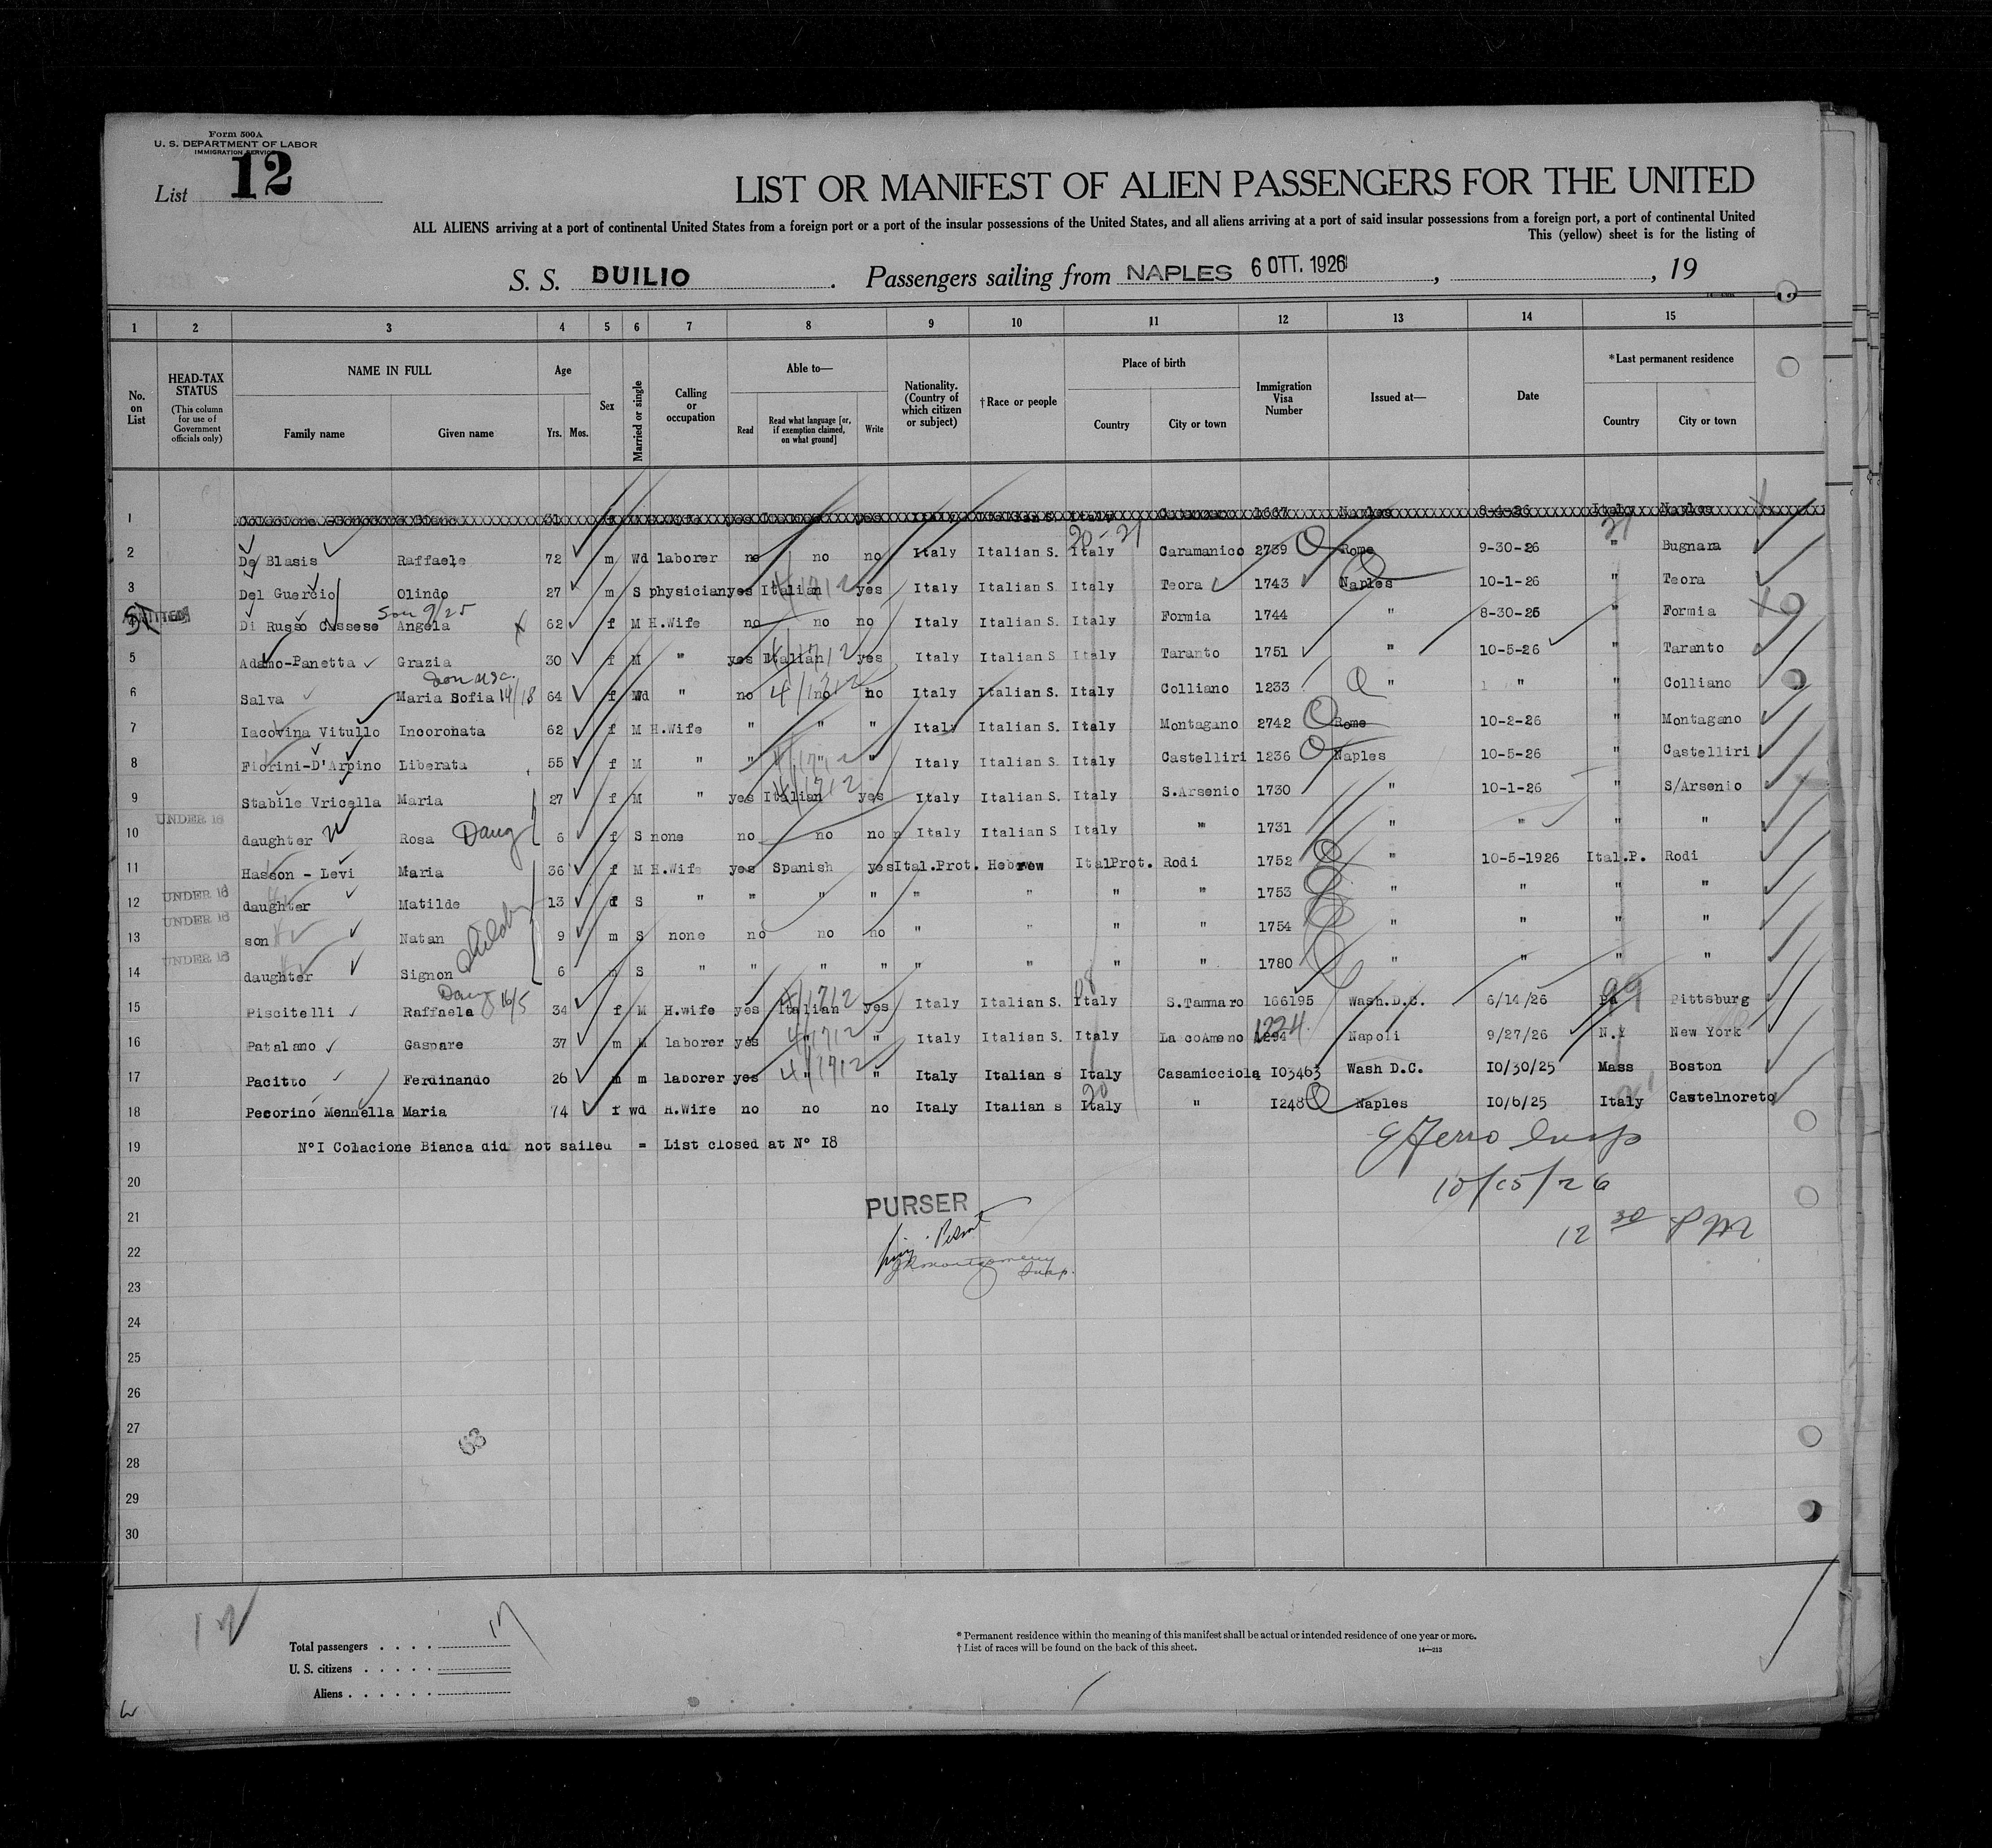 Form 500A
U. S. DEPARTMENT OF LABOR
IMMIGRATION SERVICE
List 12
LIST OR MANIFEST OF ALIEN PASSENGERS FOR THE UNITED
ALL ALIENS arriving at a port of continental United States from a foreign port or a port of the insular possessions of the United States, and all aliens arriving at a port of said insular possessions from a foreign port, a port of continental United
This (yellow) sheet is for the listing of
S. S. DUILIO . Passengers sailing from NAPLES 6 OTT. 1926 , , 19
1 2 3 4 5 6 7 8 9 10 11 12 13 14 15
No. on List
HEAD-TAX STATUS
(This column for use of Government officials only)
NAME IN FULL
Family name Given name
Age
Yrs. Mos.
Sex
Married or single
Calling or occupation
Able to—
Read
Read what language [or, if exemption claimed, on what ground]
Write
Nationality. (Country of which citizen or subject)
†Race or people
Place of birth
Country City or town
Immigration Visa Number
Issued at—
Date
*Last permanent residence
Country City or town
1 31 1667 Naples 8-4-26 Italy Naples
20-21 21
2 De Blasis Raffaele 72 m Wd laborer no no no Italy Italian S. Italy Caramanico 2739 Rome 9-30-26 " Bugnara
3 Del Guercio Olindo 27 m S physician yes Italian yes Italy Italian S. Italy Teora 1743 Naples 10-1-26 " Teora
Son 9/25
Di Russo Cassese Angela 62 f M H.Wife no no no Italy Italian S. Italy Formia 1744 " 8-30-26 " Formia
5 Adamo-Panetta Grazia 30 f M " yes Italian yes Italy Italian S Italy Taranto 1751 " 10-5-26 " Taranto
6 Salva Maria Sofia 14/18 64 f Wd " no no no Italy Italian S. Italy Colliano 1233 " " " Colliano
7 Iacovina Vitullo Incoronata 62 f M H.Wife " " " Italy Italian S. Italy Montagano 2742 Rome 10-2-26 " Montagano
8 Fiorini-D'Arpino Liberata 55 f M " " " " Italy Italian S. Italy Castelliri 1236 Naples 10-5-26 " Castelliri
9 Stabile Vricella Maria 27 f M " yes Italian yes Italy Italian S. Italy S.Arsenio 1730 " 10-1-26 " S/Arsenio
UNDER 16
10 daughter Rosa Daug 6 f S none no no no Italy Italian S Italy " 1731 " " " "
11 Hasson - Levi Maria 36 f M H.Wife yes Spanish yes Ital.Prot. Hebrew ItalProt. Rodi 1752 " 10-5-1926 Ital.P. Rodi
UNDER 16
12 daughter Matilde 13 f S " " " " " " " " 1753 " " " "
UNDER 16
13 son Natan 9 m S none no no no " " " " 1754 " " " "
UNDER 16
14 daughter Signon 6 S " " " " " " " " 1780 " " " "
Daug 16/5 08 99
15 Piscitelli Raffaela 34 f M H.wife yes Italian yes Italy Italian S. Italy S.Tammaro 166195 Wash.D.C. 6/14/26 Pa Pittsburg
16 Patalano Gaspare 37 m M laborer yes " " Italy Italian S. Italy LaccoAmeno 1224. Napoli 9/27/26 N.Y New York
17 Pacitto Ferdinando 26 m m laborer yes " " Italy Italian s Italy Casamicciola I03463 Wash D.C. I0/30/25 Mass Boston
20
18 Pecorino Mennella Maria 74 f wd H.Wife no no no Italy Italian s Italy " I248 Naples I0/6/25 Italy Castelnoreto
19 N°I Colacione Bianca did not sailed = List closed at N° I8
20
10/15/26
21 PURSER
12 30 PM
22
23
24
25
26
27
63
28
29
30
12
Total passengers . . . . 17
U. S. citizens . . . . .
Aliens . . . . . .
* Permanent residence within the meaning of this manifest shall be actual or intended residence of one year or more.
† List of races will be found on the back of this sheet.
14—213